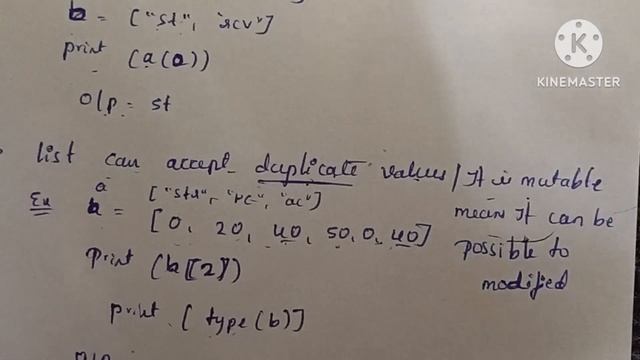 b = ["st", "rcv"]
print (a(0))
O/p = st
KINEMASTER
list can accept duplicate values / It is mutable
mean It can be
possible to
modified
a ["std", "pc", "ac"]
Ex b = [0, 20, 40, 50, 0, 40]
print (b[2])
print [type(b)]